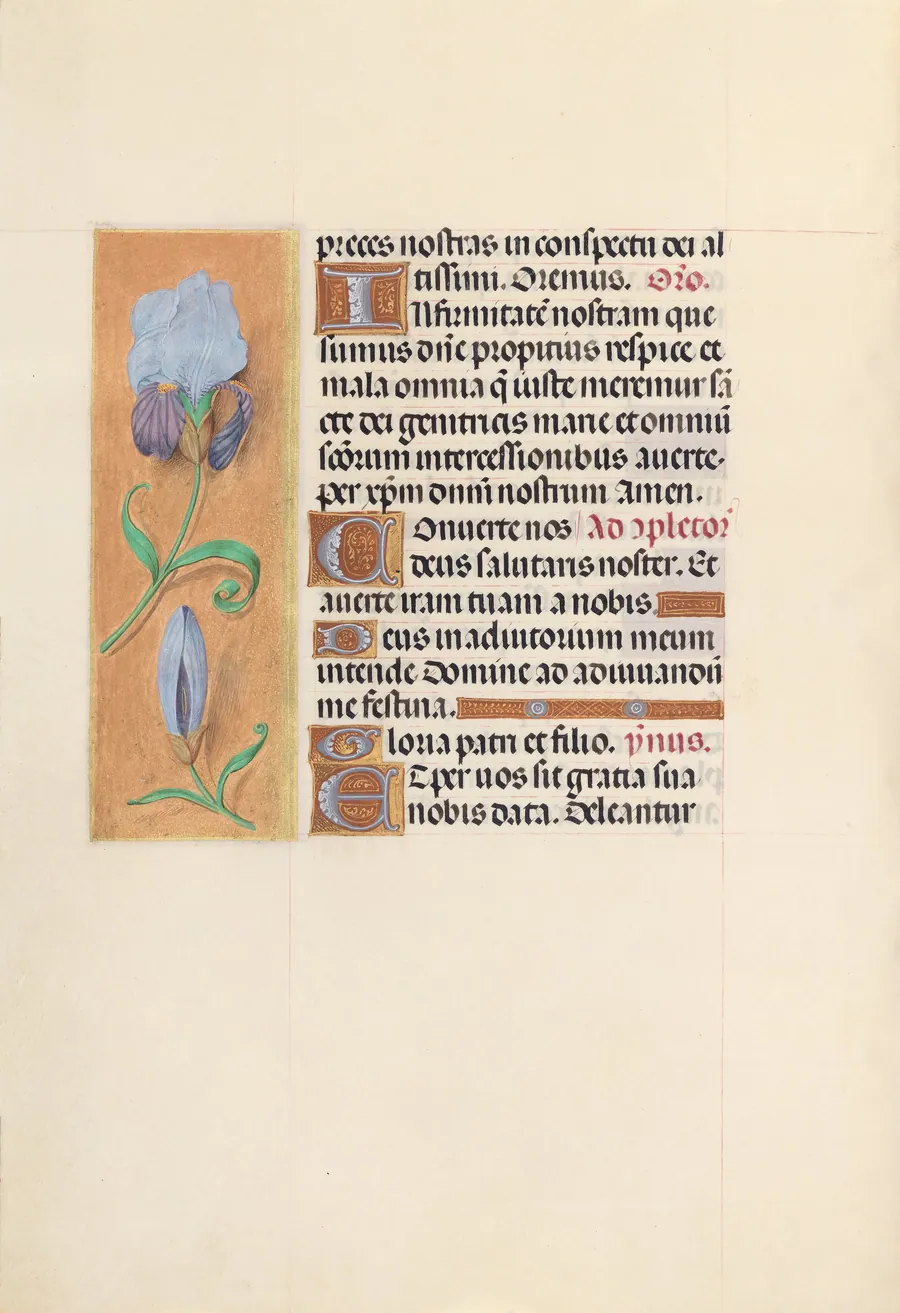 preces nostras in conspectu dei al
tissimi. Oremus. Orō.
INfirmitatē nostram que
sumus dn̄e propitius respice et
mala omnia q̄ iuste meremur sā
cte dei genitricis marie et omniū
scōrum intercessionibus auerte.
per xp̄m dnm̄ nostrum Amen.
Conuerte nos Ad ɔpletor̄
deus salutaris noster. Et
auerte iram tuam a nobis.
Deus in adiutorium meum
intende Domine ad adiuuandū
me festina.
Gloria patri et filio. ẏmnus.
ET per uos sit gratia sua
nobis data. Deleantur